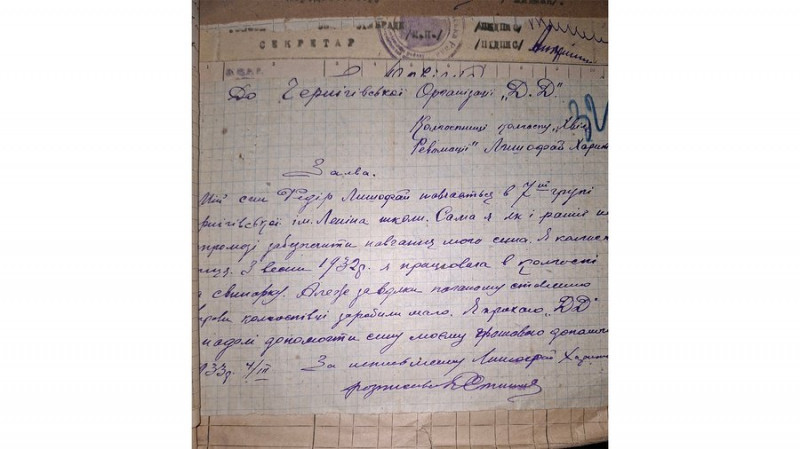 /М.П./ /ПІДПИС/
СЕКРЕТАР /ПІДПИС/
До Чернігівської Організації „Д.Д“.
Колгоспниці колгоспу „Хвиля
Революції“ Лишофай Харит
Заява.
Мій син Федір Лишофай навчається в 7ій групі
рнігівської ім. Леніна школи. Сама я як і раніш не
спроможі забезпечити навчання мого сина. Я колгосп
ниця. З весни 1932р. я працювала в колгоспі
свинарко. Але ж завдяки поганому ставленню
колгоспівці заробили мало. Я прохаю „ДД“
надалі допомогти сину моєму грошового допомог
933р. 4/III За неписьменну Лишофай Харит
розписався